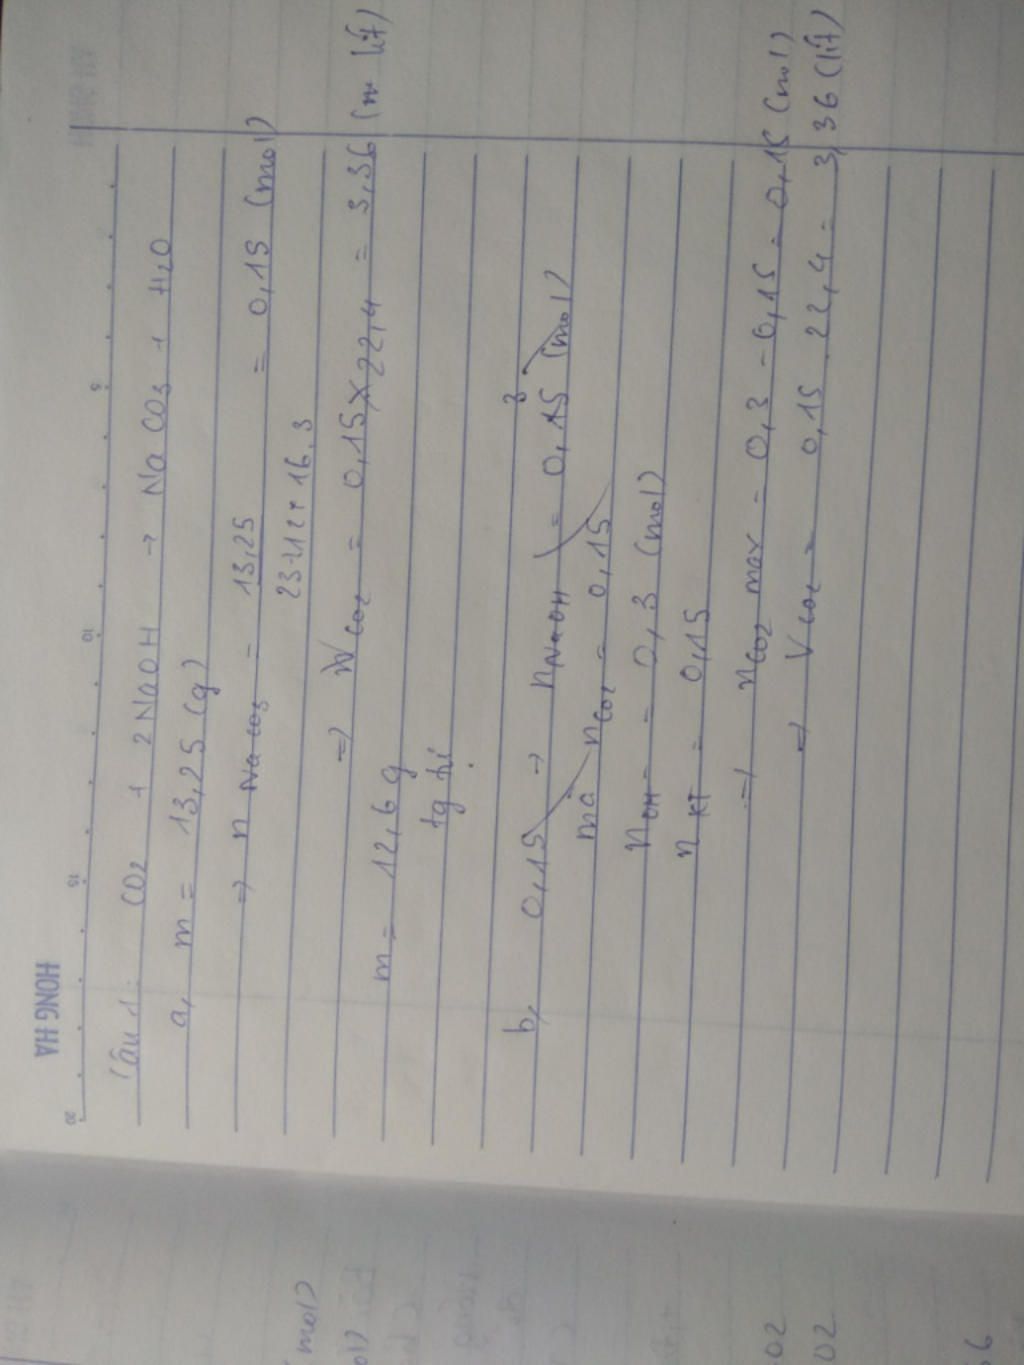 HONG HA
Câu 1: CO2 + 2NaOH → NaCO3 + H2O
a, m = 13,25 (g)
=> n NaCO3 = 13,25 / 23+12+16.3 = 0,15 (mol)
=> VCO2 = 0,15 x 22,4 = 3,36 (lít)
m = 12,6 g
tg tự
b, 0,15 → nNaOH = 0,15 (mol)
3
mà nCO2 = 0,15
nOH- = 0,3 (mol)
nKT = 0,15
=> nCO2 max = 0,3 - 0,15 = 0,15 (mol)
=> VCO2 = 0,15 . 22,4 = 3,36 (lít)
mol)